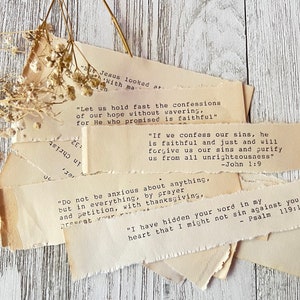 Jesus looked at
With ma
"Let us hold fast the confessions
of our hope without wavering,
for He who promised is faithful"
"If we confess our sins, he
is faithful and just and will
forgive us our sins and purify
us from all unrighteousness"
-John 1:9
"Do not be anxious about anything,
but in everything, by prayer
and petition, with thanksgiving,
present your
"I have hidden your word in my
heart that I might not sin against you
- Psalm 119:1